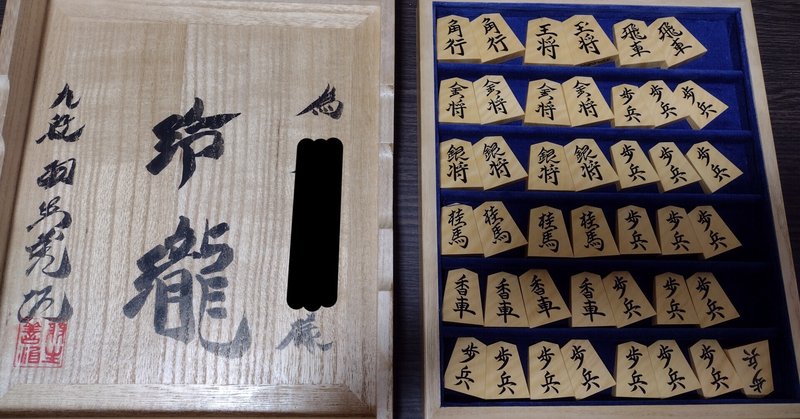 為
様
玲瓏
九段 羽生善治
羽生
善治
角行 角行 王将 玉将 飛車 飛車
金将 金将 金将 金将 歩兵 歩兵 歩兵
銀将 銀将 銀将 銀将 歩兵 歩兵 歩兵
桂馬 桂馬 桂馬 桂馬 歩兵 歩兵 歩兵
香車 香車 香車 香車 歩兵 歩兵 歩兵
歩兵 歩兵 歩兵 歩兵 歩兵 歩兵 歩兵 歩兵